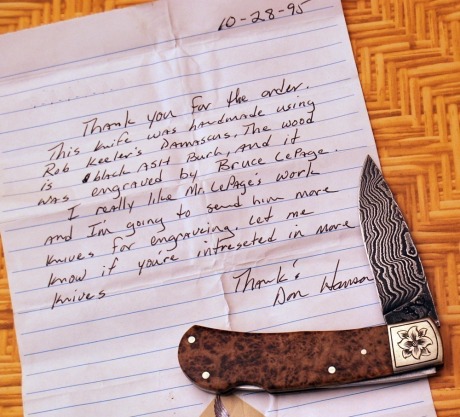 10-28-95
Thank you for the order.
This knife was handmade using
Rob Keeler's Damascus. The wood
is black ASH Burh, and it
was engraved by Bruce LePage.
I really like Mr. LePage's work
and I'm going to send him more
knives for engraveing. Let me
know if you're intreseted in more
knives
Thank's
Don Hanson